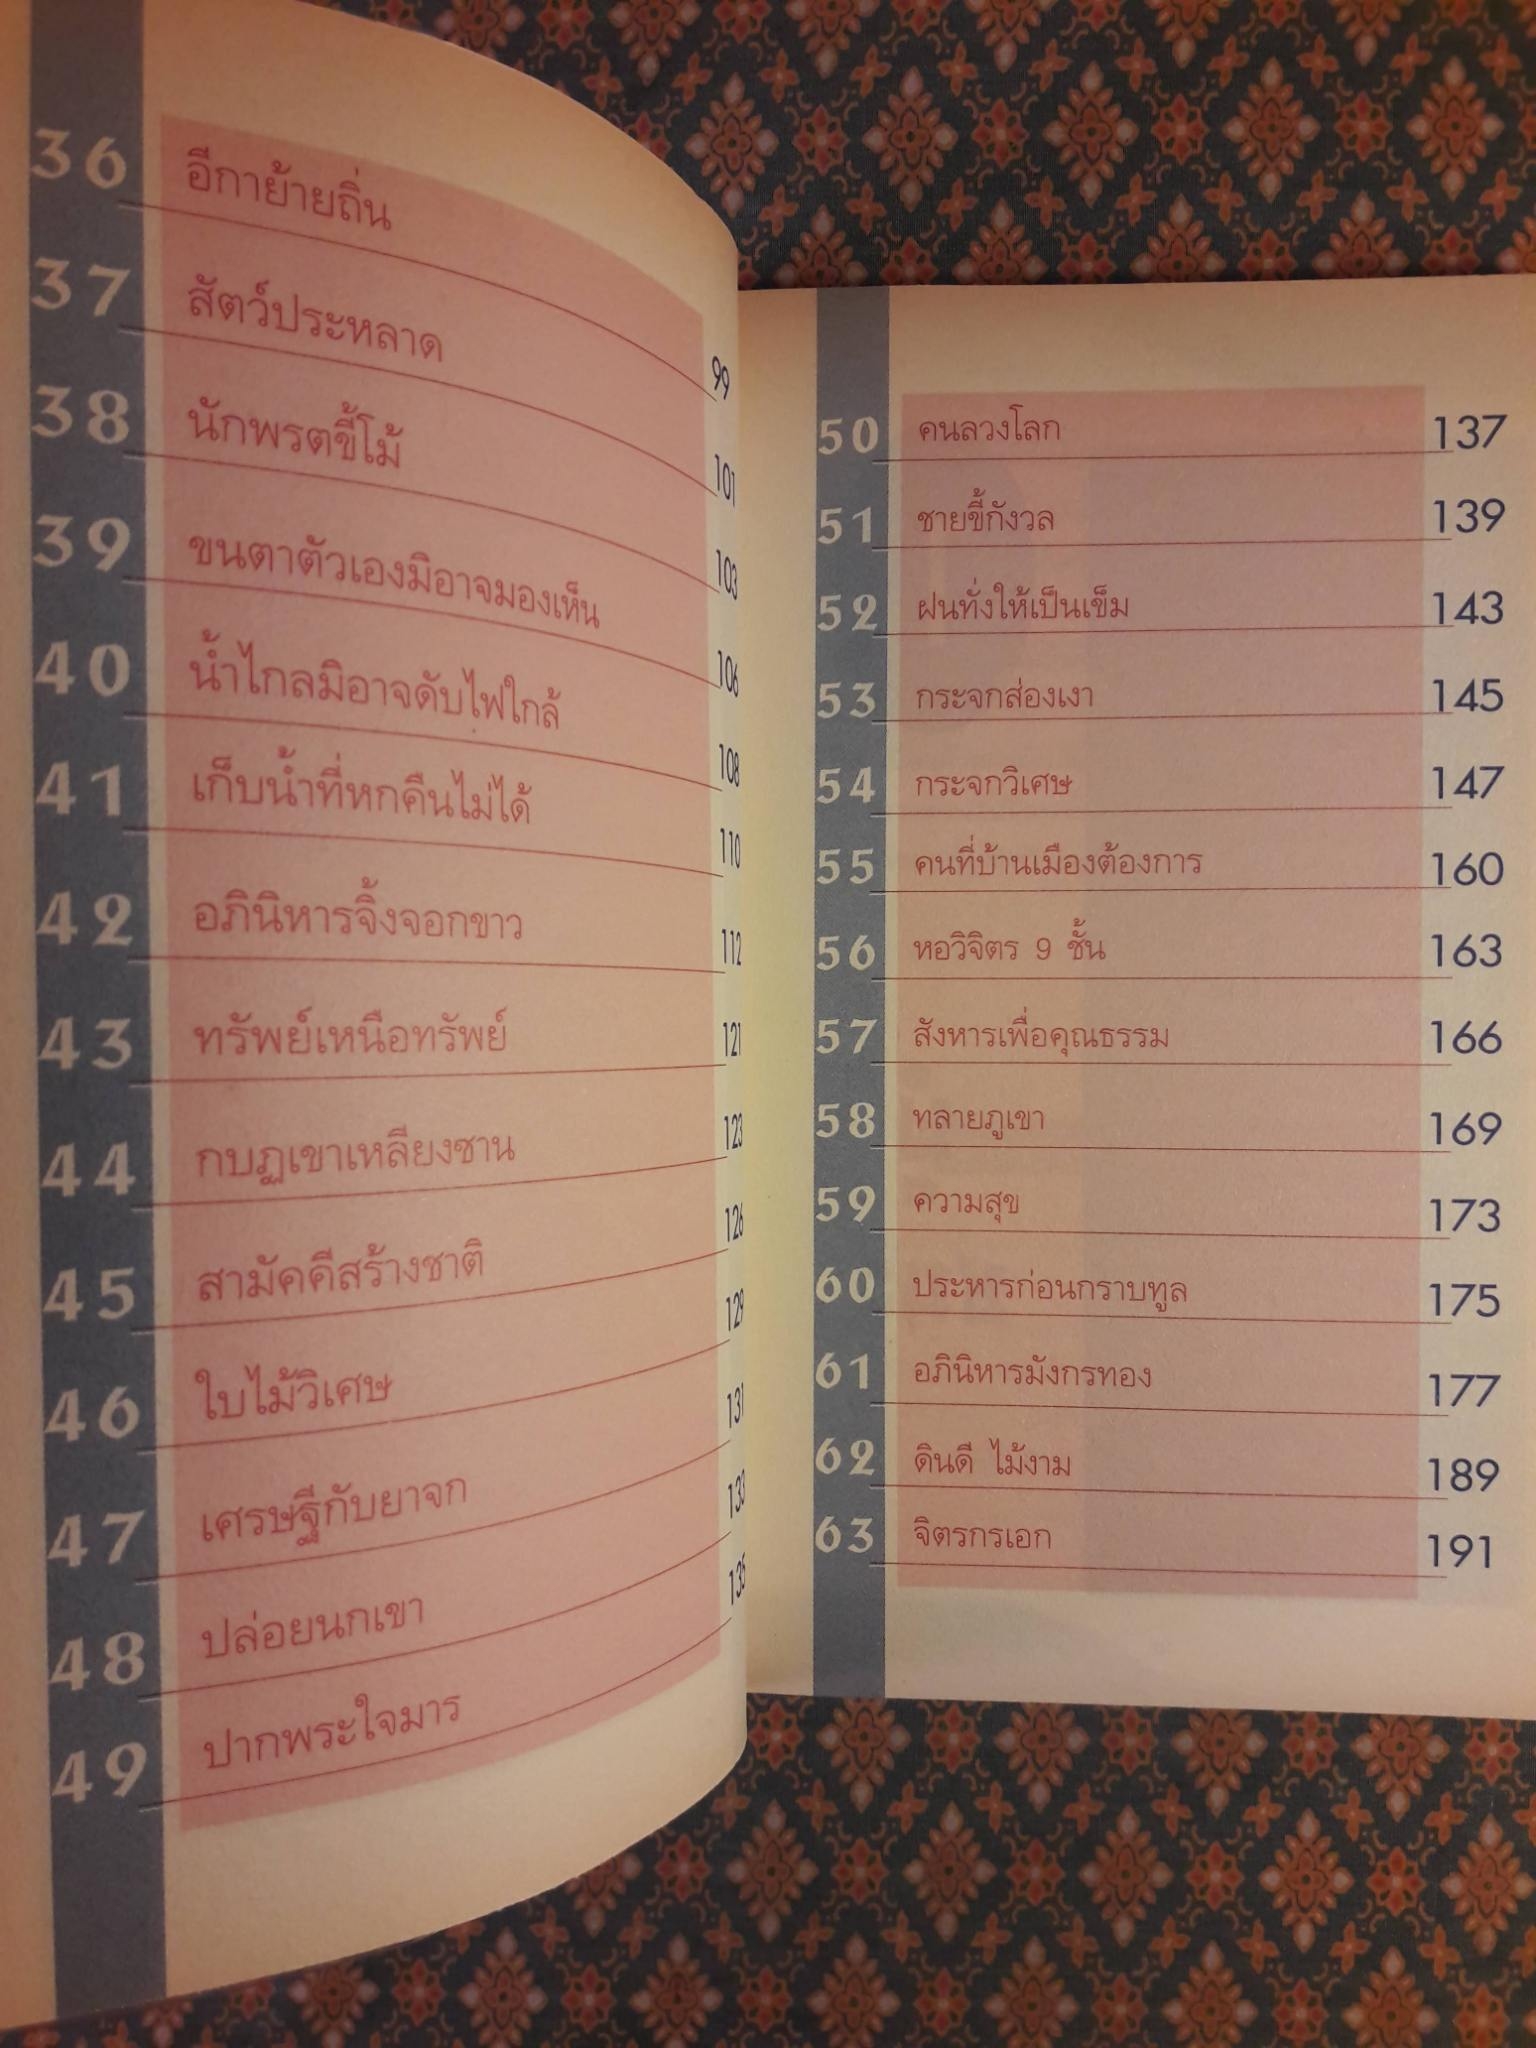 36 อีกาย้ายถิ่น 99
37 สัตว์ประหลาด 101
38 นักพรตขี้โม้ 103
39 ขนตาตัวเองมิอาจมองเห็น 106
40 น้ำไกลมิอาจดับไฟใกล้ 108
41 เก็บน้ำที่หกคืนไม่ได้ 110
42 อภินิหารจิ้งจอกขาว 112
43 ทรัพย์เหนือทรัพย์ 121
44 กบฏเขาเหลียงซาน 123
45 สามัคคีสร้างชาติ 126
46 ใบไม้วิเศษ 129
47 เศรษฐีกับยาจก 131
48 ปล่อยนกเขา 133
49 ปากพระใจมาร 135
50 คนลวงโลก 137
51 ชายขี้กังวล 139
52 ฝนทั่งให้เป็นเข็ม 143
53 กระจกส่องเงา 145
54 กระจกวิเศษ 147
55 คนที่บ้านเมืองต้องการ 160
56 หอวิจิตร 9 ชั้น 163
57 สังหารเพื่อคุณธรรม 166
58 ทลายภูเขา 169
59 ความสุข 173
60 ประหารก่อนกราบทูล 175
61 อภินิหารมังกรทอง 177
62 ดินดี ไม้งาม 189
63 จิตรกรเอก 191